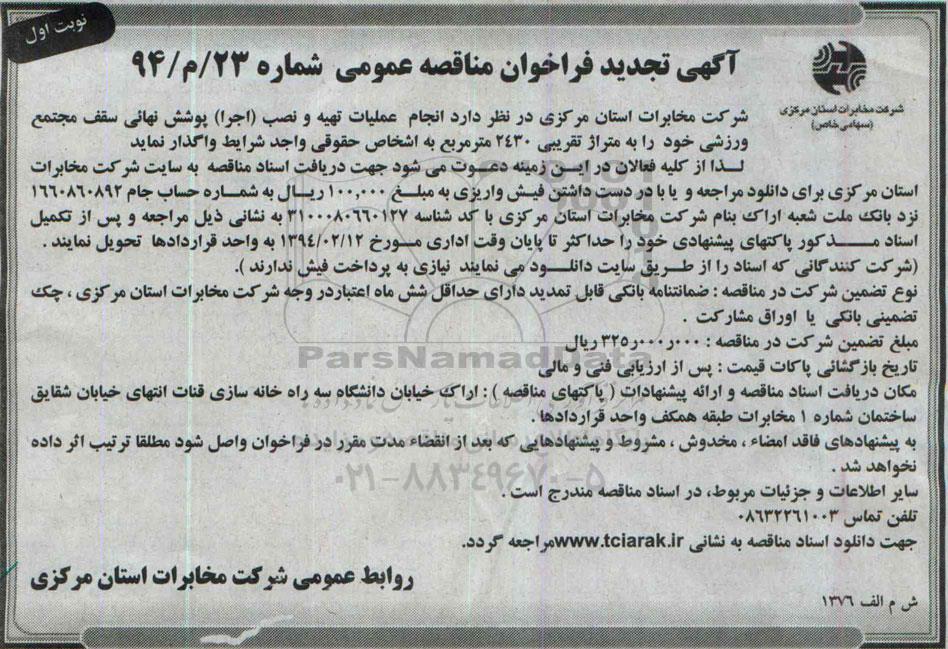 نوبت اول
آگهی تجدید فراخوان مناقصه عمومی شماره ۲۳/م/۹۴
شرکت مخابرات استان مرکزی
(سهامی خاص)
شرکت مخابرات استان مرکزی در نظر دارد انجام عملیات تهیه و نصب (اجرا) پوشش نهائی سقف مجتمع
ورزشی خود را به متراژ تقریبی ۲۴۳۰ مترمربع به اشخاص حقوقی واجد شرایط واگذار نماید
لـذا از کلیه فعالان در ایـن زمینه دعـوت می شود جهت دریافت اسناد مناقصه به سایت شرکت مخابرات
استان مرکزی برای دانلود مراجعه و یا با در دست داشتن فیش واریزی به مبلـغ ۱۰۰,۰۰۰ ریـال به شمـاره حساب جام ۱۶۶۰۸۶۰۸۹۲
نزد بانک ملت شعبه اراک بنام شرکت مخابرات استان مرکزی با کد شناسه ۳۱۰۰۰۸۰۶۶۰۱۲۷ به نشانی ذیل مراجعه و پس از تکمیل
اسناد مـذکور پاکتهای پیشنهادی خود را حداکثر تا پایان وقت اداری مـورخ ۱۳۹۴/۰۲/۱۲ به واحد قراردادها تحویل نمایند .
(شرکت کنندگانی که اسناد را از طـریق سایت دانلـود می نمایند نیازی به پرداخت فیش ندارند ).
نوع تضمین شرکت در مناقصه : ضمانتنامه بانکی قابل تمدید دارای حداقل شش ماه اعتباردر وجه شرکت مخابرات استان مرکزی ، چک
تضمینی بانکی یا اوراق مشارکت .
مبلغ تضمین شرکت در مناقصه : ۳۲۵ر۰۰۰ر۰۰۰ ریال
تاریخ بازگشائی پاکات قیمت : پس از ارزیابی فنی و مالی
مکان دریافت اسناد مناقصه و ارائه پیشنهادات ( پاکتهای مناقصه ) : اراک خیابان دانشگاه سه راه خانه سازی قنات انتهای خیابان شقایق
ساختمان شماره ۱ مخابرات طبقه همکف واحد قراردادها .
به پیشنهادهای فاقد امضاء ، مخدوش ، مشروط و پیشنهادهایی که بعد از انقضاء مدت مقرر در فراخوان واصل شود مطلقا ترتیب اثر داده
نخواهد شد .
سایر اطلاعات و جزئیات مربوط، در اسناد مناقصه مندرج است .
تلفن تماس ۰۸۶۳۲۲۶۱۰۰۳
جهت دانلود اسناد مناقصه به نشانی www.tciarak.irمراجعه گردد.
روابط عمومی شرکت مخابرات استان مرکزی
ش م الف ۱۳۷۶
ParsNamadData
۰۲۱-۸۸۳۴۹۶۷۰-۵